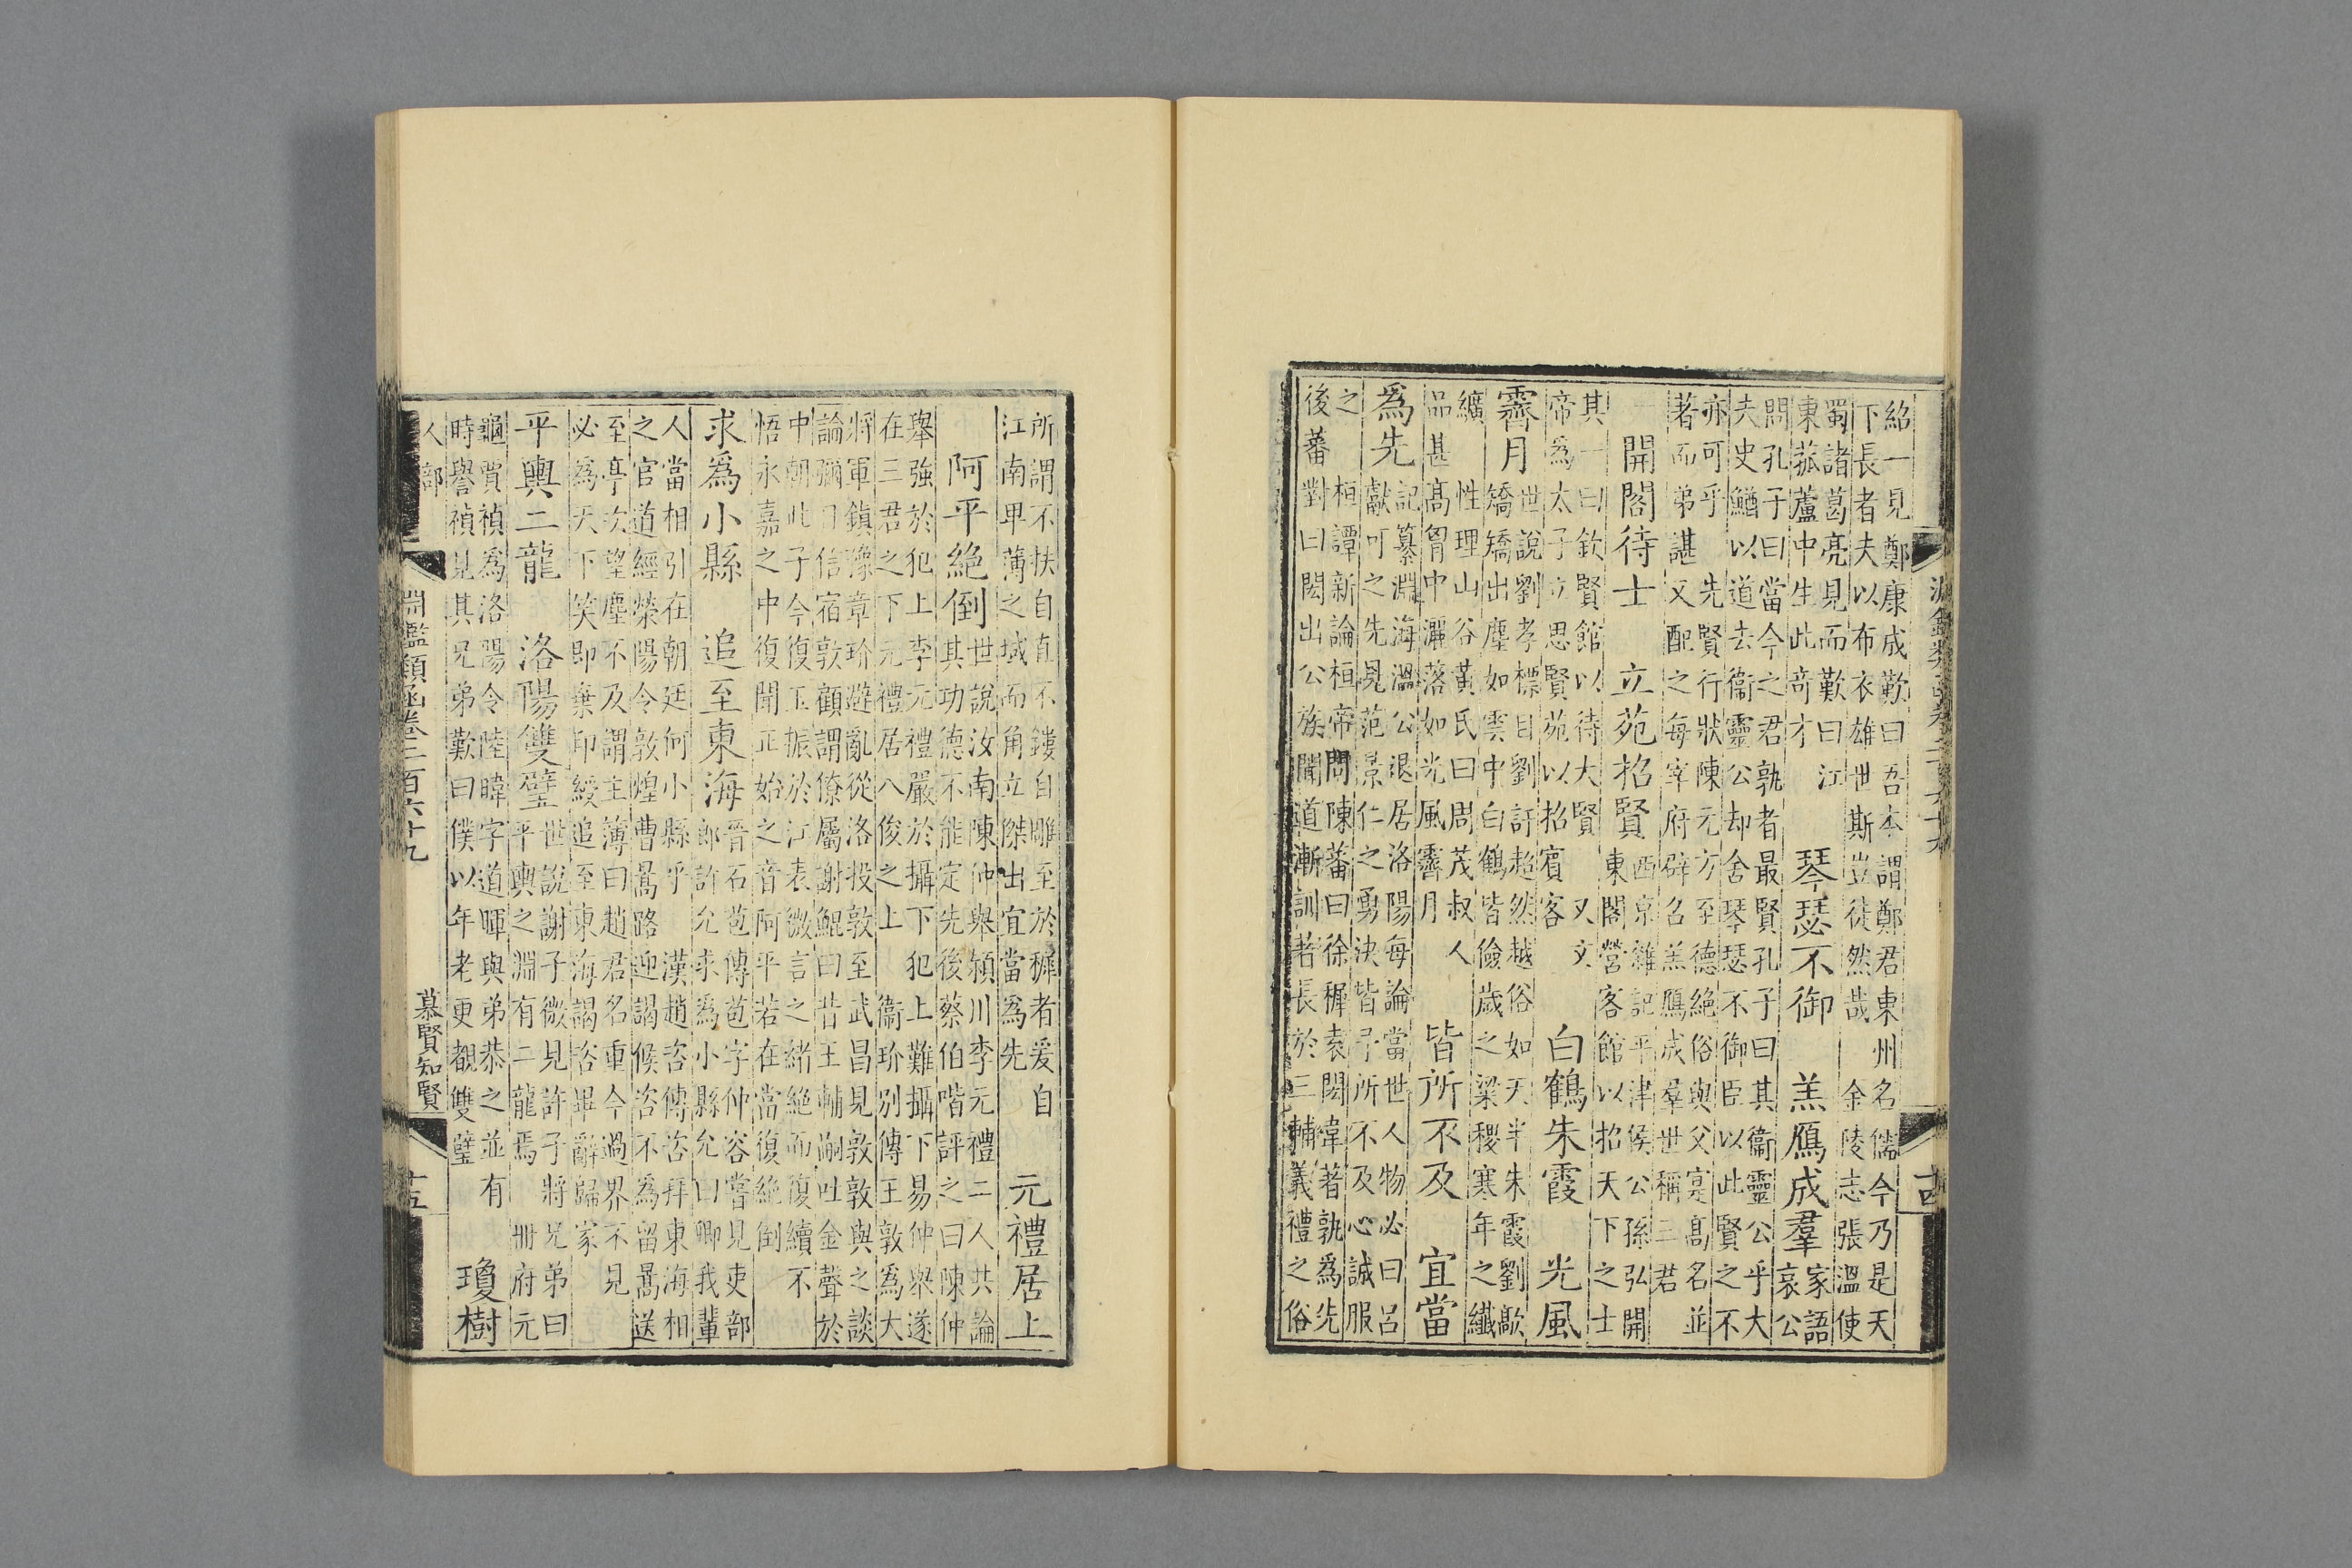 淵鑑類函卷二百六十九 十四
紹一見鄭康成歎曰吾本謂鄭君東州名儒今乃是天
下長者夫以布衣雄世斯豈徒然哉 金陵志張溫使
蜀諸葛亮見而歎曰江
東菰蘆中生此奇才
琴瑟不御 羔鴈成羣
家語
哀公
問孔子曰當今之君孰者最賢孔子曰其衞靈公乎大
夫史鰌以道去衞靈公却舍琴瑟不御臣以此賢之不
亦可乎 先賢行狀陳元方至德絕俗與父寔髙名並
著而弟諶又配之每宰府辟召羔鴈成羣世稱三君
開閤待士 立苑招賢
西京雜記平津侯公孫弘開
東閤營客館以招天下之士
其一曰欽賢館以待大賢 又文
帝為太子立思賢苑以招賓客
白鶴朱霞 光風
霽月
世說劉孝標目劉訏超然越俗如天半朱霞劉歊
矯矯出塵如雲中白鶴皆儉歲之粱稷寒年之纖
纊 性理山谷黃氏曰周茂叔人
品甚髙胷中灑落如光風霽月
皆所不及 宜當
為先
記纂淵海溫公退居洛陽每論當世人物必曰吕
獻可之先見范景仁之勇決皆予所不及心誠服
之 桓譚新論桓帝問陳蕃曰徐穉袁閎韋著孰為先
後蕃對曰閎出公族聞道漸訓著長於三輔義禮之俗
所謂不扶自直不鏤自雕至於穉者爰自
江南卑薄之域而角立傑出宜當為先
元禮居上
阿平絕倒
世說汝南陳仲舉潁川李元禮二人共論
其功德不能定先後蔡伯喈評之曰陳仲
舉強於犯上李元禮嚴於攝下犯上難攝下易仲舉遂
在三君之下元禮居八俊之上 衞玠別傳王敦為大
將軍鎮豫章玠避亂從洛投敦至武昌見敦敦與之談
論彌日信宿敦顧謂僚屬謝鯤曰昔王輔嗣吐金聲於
中朝此子今復玉振於江表微言之緒絕而復續不
悟永嘉之中復聞正始之音阿平若在當復絕倒
求為小縣 追至東海
晉石苞傳苞字仲容嘗見吏部
郎許允求為小縣允曰卿我輩
人當相引在朝廷何小縣乎 漢趙咨傳咨拜東海相
之官道經滎陽令敦煌曹暠路迎謁候咨不為留暠送
至亭次望塵不及謂主簿曰趙君名重今過界不見
必為天下笑即棄印綬追至東海謁咨畢辭歸家
平輿二龍 洛陽雙璧
世說謝子微見許子將兄弟曰
平輿之淵有二龍焉 冊府元
龜賈禎為洛陽令陸暐字道暉與弟恭之並有
時譽禎見其兄弟歎曰僕以年老更覩雙璧
瓊樹
人部 淵鑑類函卷二百六十九 慕賢知賢 十五